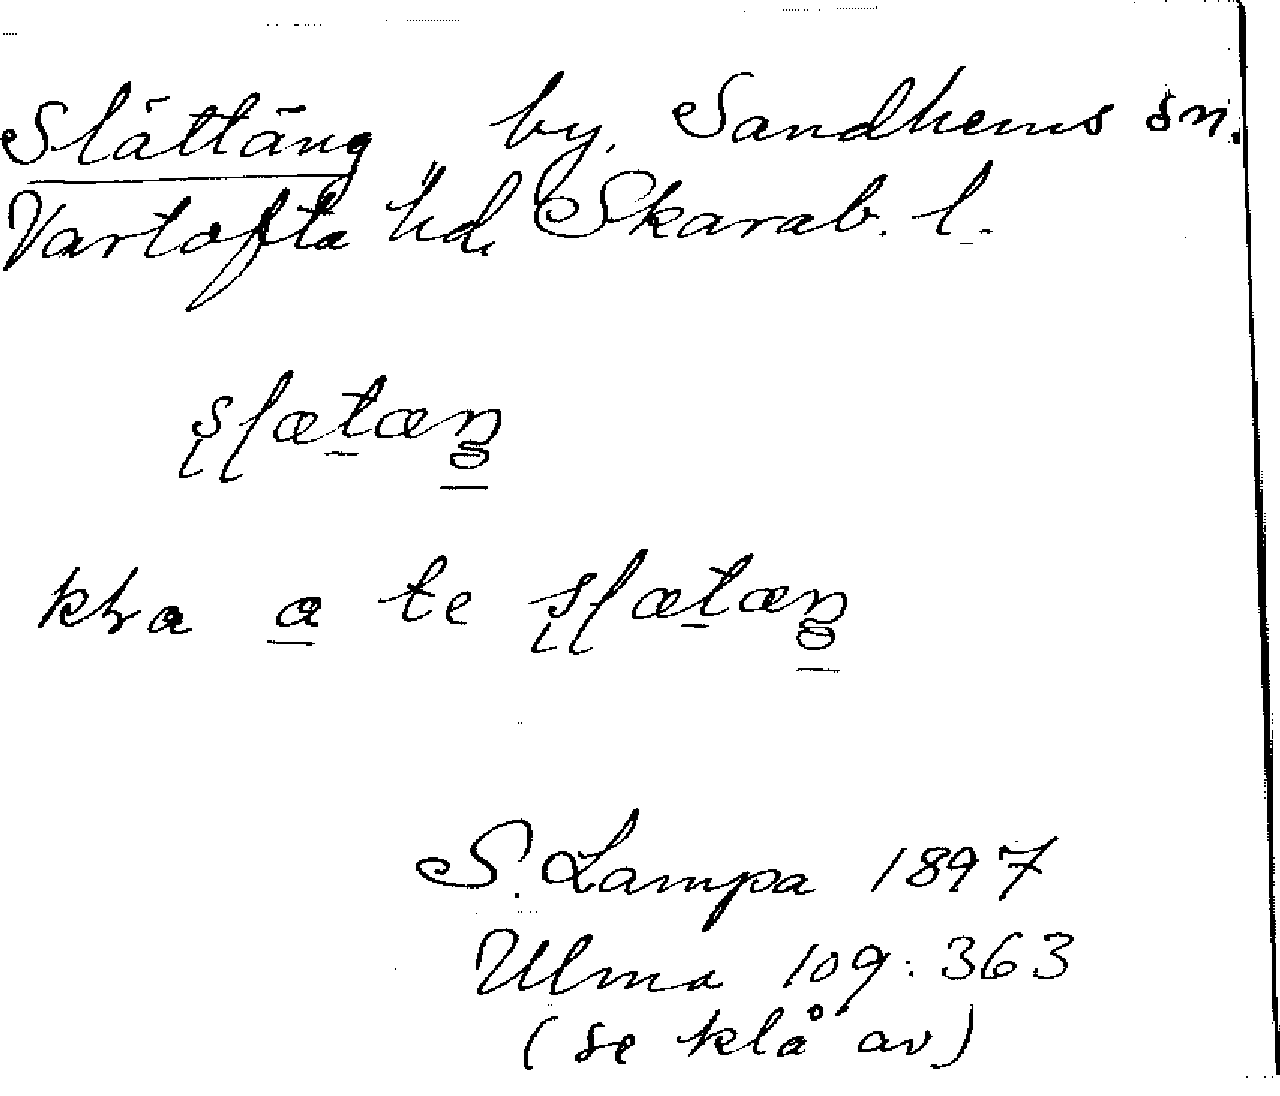 Slättäng by, Sandhems sn.
Vartofta hd, Skarab. l.
a te
S. Lampa 1897
Ulma 109:363
(se klå av)